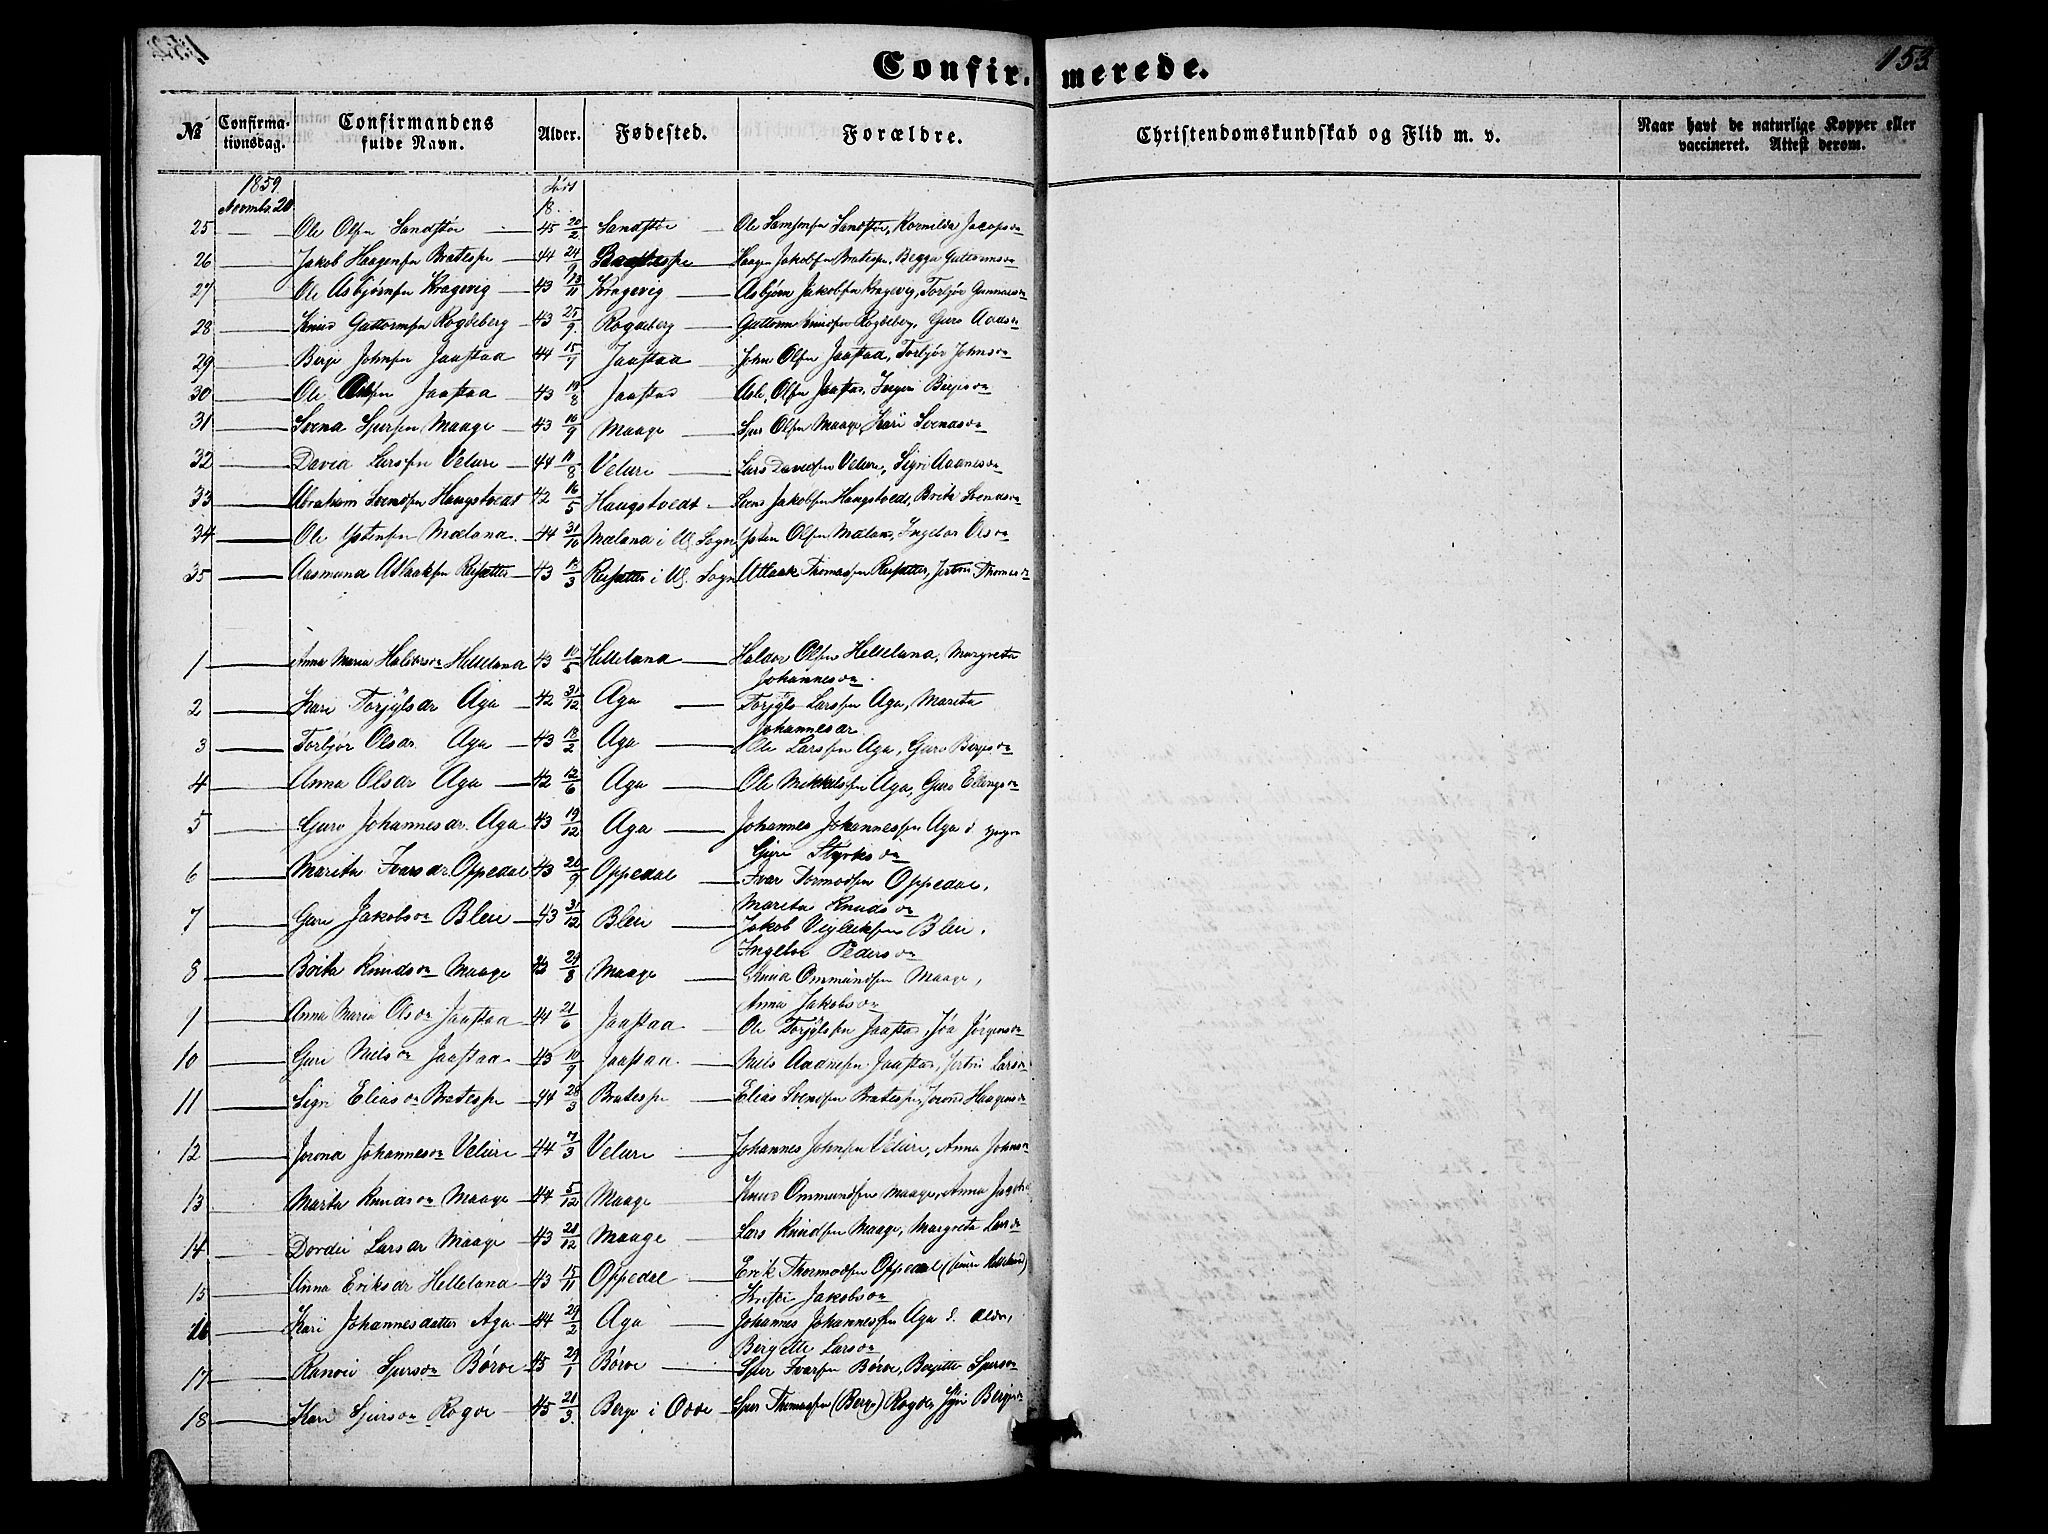 Confir- merede.
153
№ Confirma-tionsdag. Confirmandens fulde Navn. Alder. Fødested. Forældre. Christendomskundskab og Flid m. v. Naar havt de naturlige Kopper eller vaccineret. Attest derom.
1859. født
Novmbr. 20 18
25 — Ole Olsen Sandstøe — 45 20/2 Sandstøe — Ole Samsonsen Sandstøe, Kornilda Jacobsdr
26 — Jakob Haagensen Bratespe — 44 24/9 Bratespe — Haagen Jakobsen Bratespe, Begga Guttormsdr
27 — Ole Asbjørnsen Kragevig — 43 13/11 Kragevig — Asbjørn Jakobsen Kragevig, Torbjør Gunnarsdr
28 — Knud Guttormsen Rogdeberg — 43 25/9 Rogdeberg — Guttorm Knudsen Rogdeberg, Guro Aadsdr
29 — Berge Johnsen Jaastad 44 15/7 Jaastad — John Olsen Jaastad, Torbjør Johnsdr
30 — Ole Aslsen Jaastad — 43 19/8 Jaastad — Asle Olsen Jaastad, Inger Bergesdr
31 — Svend Sjursen Maage — 43 10/9 Maage — Sjur Olsen Maage, Kari Svendsdr
32 — David Larssen Velure — 44 11/8 Velure — Lars Davidsen Velure, Sigri Aadnesdr
33 — Abraham Svendsen Haugstvedt 42 16/5 Haugstvedt — Svend Jakobsen Haugstvedt, Brita Svendsdr
34 — Ole Ystensen Mæland — 44 31/10 Mæland i Ul. Sogn Ysten Olsen Mæland, Ingebor Olsdr
35 — Aasmund Aslaksen Reisæter — 43 12/3 Reisæter i Ul. Sogn Atlaak Thomassen Reisæter, Jertru Thomasdr
1 — Anna Maria Haldorsdr Helleland 43 10/5 Helleland — Haldor Olsen Helleland, Margreta
Johannesdr.
2 — Kari Torjylsdr Aga — 42 31/12 Aga — Torjyls Larssen Aga, Marita
Johannesdr
3 — Torbjør Olsdr. Aga — 43 18/2 Aga — Ole Larssen Aga, Guro Bergesdr
4 — Anna Olsdr Aga — 42 12/6 Aga — Ole Mikkelsen Aga, Guro Ellingsdr
5 — Guro Johannesdr. Aga 43 19/12 Aga — Johannes Johannessen Aga d. yngre
Guri Styrksdr
6 — Marita Ivarsdr. Oppedal 43 20/9 Oppedal — Ivar Tormodsen Oppedal,
Marita Knudsdr
7 — Guri Jakobsdr Bleie — 43 31/12 Bleie — Jakob Vigleiksen Bleie,
Ingebor Pedersdr
8 — Brita Knudsdr Maage 43 24/8 Maage — Knud Ommundsen Maage,
Anna Jakobsdr
1 — Anna Maria Olsdr Jaastad 44 21/6 Jaastad — Ole Torjylssen Jaastad, Joa Jørgensdr
10 — Guri Nielsdr Jaastad — 43 10/9 Jaastad — Niels Aadnesen Jaastad, Jertru Larsdr
11 — Sigri Eliasdr Bratespe — 44 28/3 Bratespe — Elias Svendsen Bratespe, Jorond Haagensdr
12 — Jorond Johannesdr Velure — 44 7/3 Velure — Johannes Johnsen Velure, Anna Johnsdr
13 — Marita Knudsdr Maage — 44 5/12 Maage — Knud Ommundsen Maage, Anna Jagobsd
14 — Dordei Larsdr Maage — 43 21/12 Maage — Lars Knudsen Maage, Margreta Larsdr
15 — Anna Eriksdr Helleland — 43 15/11 Oppedal — Erik Thormodsen Oppedal
Kristi Jakobsdr
16 — Kari Johannesdatter Aga — 44 29/2 Aga — Johannes Johannessen Aga d. ældre,
Bergette Larsdr
17 — Ranvei Sjursdr Børve — 45 29/1 Børve — Sjur Ivarsen Børve, Bergitte Sjursdr
18 — Kari Sjursdr Rogde — 45 21/3. Berge i Odde — Sjur Thomassen (Berge) Rogde, Sigri Bergesdr